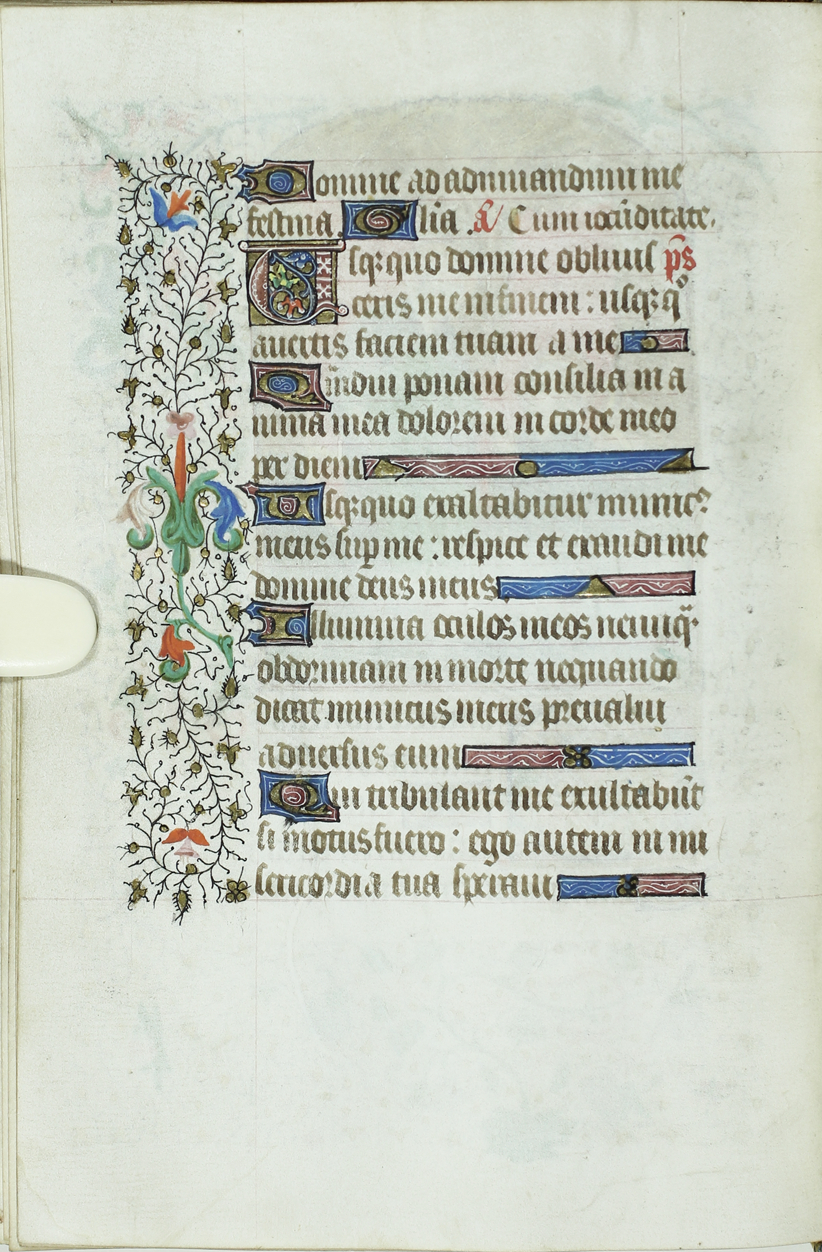 Domine ad adiuuandum me
festina. Glia. A Cum iocūditate.
Usq; quo domine obliuis ps
ceris me in finem : usq; qo
auertis faciem tuam a me
Qmdiu ponam consilia in a
nima mea dolorem in corde meo
per diem
Usq; quo exaltabitur inimic9
meus sup me : respice et exaudi me
domine deus meus
Illumina oculos meos ne unq̄
obdormiam in morte nequando
dicat inimicus meus preualui
aduersus eum
Qui tribulant me exultabūt
si motus fuero : ego autem in mi
sericordia tua speraui